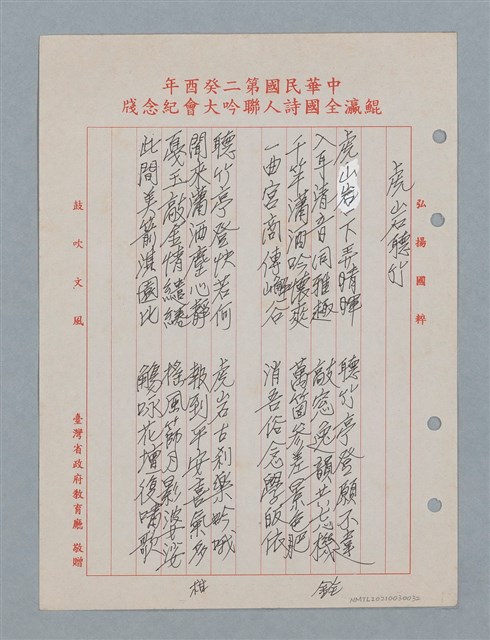 中華民國第二癸酉年
鯤瀛全國詩人聯吟大會紀念牋
弘揚國粹
虎山岩聽竹
虎山岩下弄晴暉 聽竹亭登願不違
入耳清音同雅趣 敲窓逸韻共忘機
千竿瀟洒吟懷爽 萬箇參差景色肥
一曲宮商傳嶰谷 消吾俗念學皈依
銓
聽竹亭登快若何 虎岩古刹樂吟哦
聞來瀟洒塵心靜 報到平安喜氣多
戛玉敲金情繾綣 搖風篩月影婆娑
此間美箭淇園比 觴咏花壇復嘯歌
鼓吹文風
臺灣省政府教育廳 敬贈
NMTL20210030032